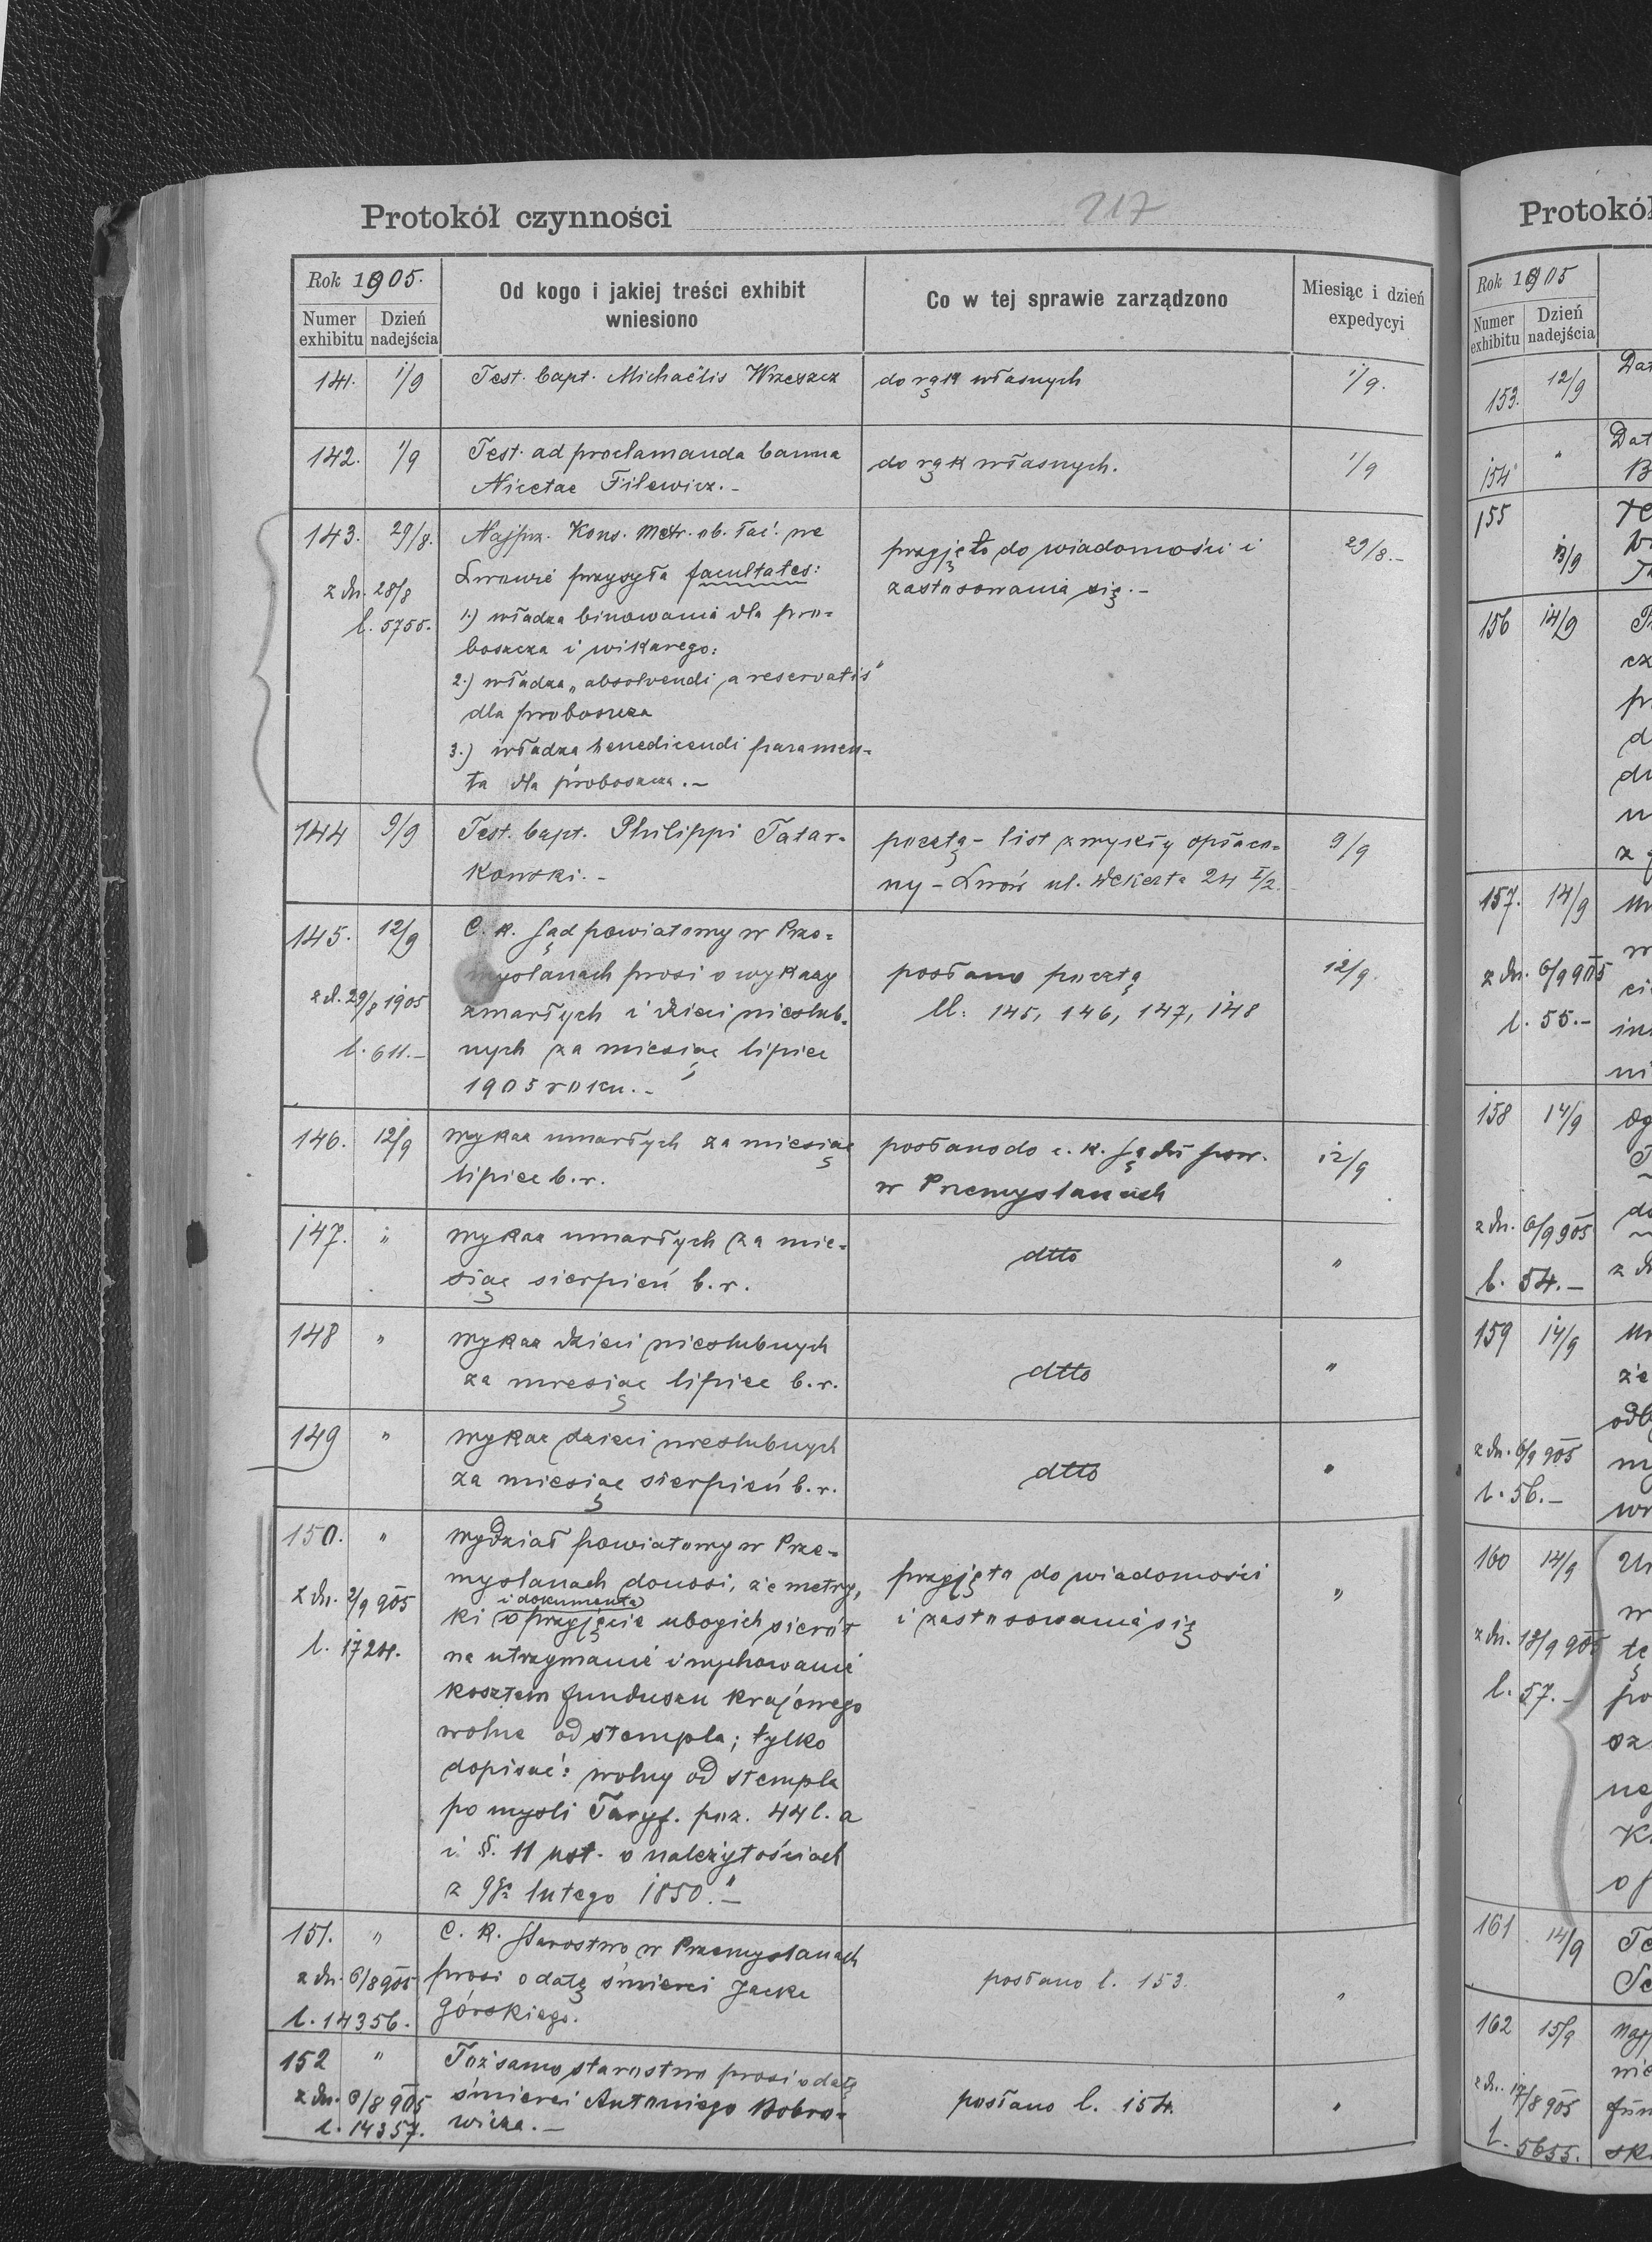 Protokół czynności 217
Rok 1905.
Numer exhibitu
Dzień nadejścia
Od kogo i jakiej treści exhibit wniesiono
Co w tej sprawie zarządzono
Miesiąc i dzień expedycyi
141. 1/9 Test. bapt. Michaëlis Wrzeszcz do rąk własnych 1/9.
142. 1/9 Test. ad proclamanda banna do rąk własnych. 1/9
Nicetae Filewicz.-
143. 29/8. Najprz. Kons. Metr. ob. łać. we przyjęto do wiadomości i 29/8.-
z dn. 28/8 Lwowie przysyła facultates: zastosowania się.-
l. 5755. 1.) władza binowania dla pro-
boszcza i wikarego:
2.) władza „absolvendi a reservatis"
dla proboszcza
3.) władza benedicendi paramen-
ta dla proboszcza.-
144 9/9 Test. bapt. Philippi Tatar- pocztą - list zwykły opłaco- 9/9
kowski.- ny - Lwów ul. Wekerta 24 I/2.
145. 12/9 C. k. Sąd powiatowy w Prze-
myślanach prosi o wykazy posłano pocztą 12/9.
z d. 29/8 1905 zmarłych i dzieci nieślub- ll. 145, 146, 147, 148
l. 611.- nych za miesiąc lipiec
1905 roku.-
146. 12/9 Wykaz umarłych za miesiąc posłano do c. k. Sądu pow. 12/9
lipiec b. r. w Przemyślanach
147. " Wykaz umarłych za mie- dtto "
siąc sierpień b. r.
148 " Wykaz dzieci nieślubnych dtto "
za miesiąc lipiec b. r.
149 " Wykaz dzieci nieślubnych dtto "
za miesiąc sierpień b. r.
150. " Wydział powiatowy w Prze-
myślanach donosi, że metry- przyjęto do wiadomości "
z dn. 2/9 905 i dokumenta
ki o przyjęcie ubogich sierót i zastosowania się
l. 1724. na utrzymanie i wychowanie
kosztem funduszu krajowego
wolne od stempla; tylko
dopisać: wolny od stempla
po myśli Taryf. poz. 44 l. a
i §. 11 ust. o należytościach
z 9go lutego 1850."-
151. " C. k. Starostwo w Przemyślanach
z dn. 6/8 905 prosi o datę śmierci Jacka posłano l. 153. "
l. 14356. Górskiego.
152 " Toż samo starostwo prosi o datę
z dn. 6/8 905 śmierci Antoniego Bobro- posłano l. 154. "
l. 14357. wicza.-
Protokół
Rok 1905
Numer exhibitu
Dzień nadejścia
153. 12/9 Dat
154 " Dat
B
155 Te
13/9
156 14/9
cz
d
z
157. 14/9
z dn. 6/9 905
l. 55.-
ni
158 14/9
z dn. 6/9 905 do
l. 54.- z d
159 14/9
że
odb
z dn. 6/9 905
l. 56.-
160 14/9
w
z dn. 12/9 905 tę
l. 57.- po
161 14/9 Te
162 15/9 Najp
z dn. 17/8 905 fun
l. 5655. sk